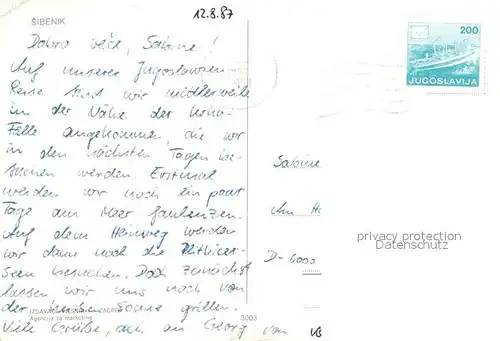 12.8.87
ŠIBENIK
200
JUGOSLAVIJA
Dobra več, Sabine!
Auf unserer Jugoslawien-
Reise sind wir mittlerweile
in der Nähe der Krka-
Fälle angekommen, die wir
in den nächsten Tagen be-
suchen werden. Erstmal
werden wir noch ein paar
Tage am Meer faulenzen.
Auf dem Heimweg werden
wir dann noch die Plitvicer-
Seen besuchen. Doch zunächst
lassen wir uns noch von
der Sonne grillen.
Viele Grüße, auch an Georg von
Sabine
Am H
D-6000
privacy protection
Datenschutz
IZDAVAČ ZAGREB
Agencija za marketing
3003